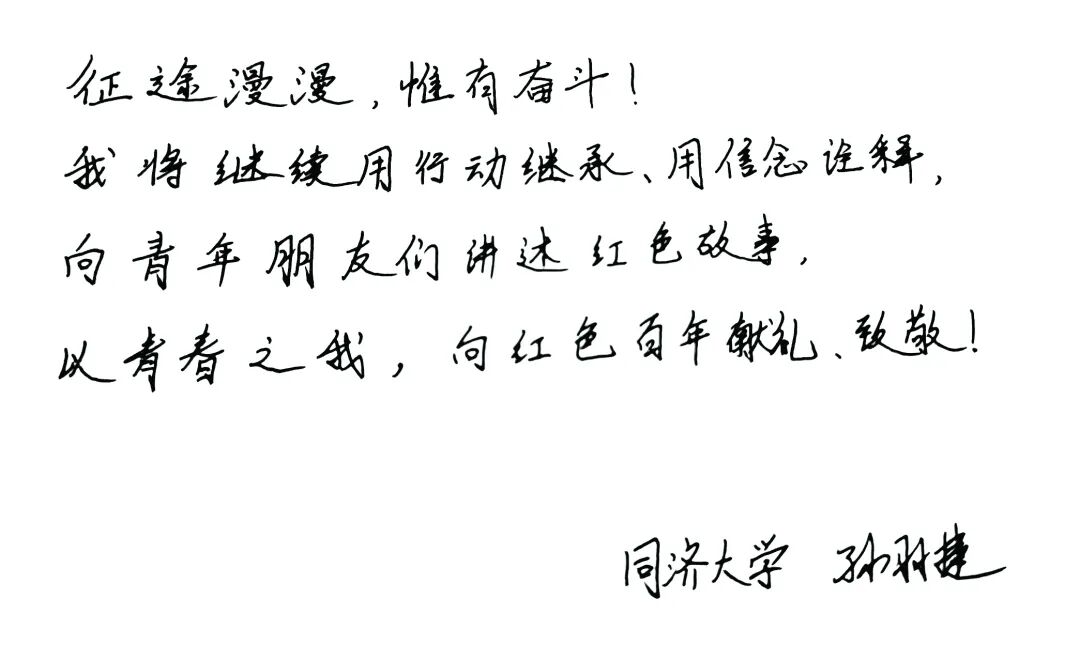 征途漫漫,惟有奋斗!
我将继续用行动继承、用信念诠释,
向青年朋友们讲述红色故事,
以青春之我,向红色百年献礼、致敬!
同济大学 孙羽捷